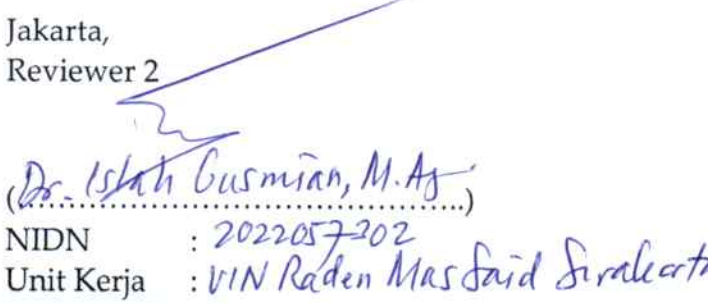 Jakarta,
Reviewer 2
(Dr. Islah Gusmian, M.Ag)
NIDN : 2022057302
Unit Kerja : UIN Raden Mas Said Surakarta